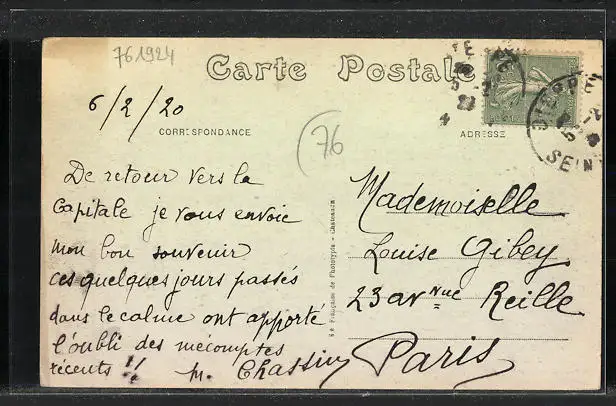 761924
Carte Postale
6/2/20
CORRESPONDANCE
ADRESSE
76
De retour vers la
Capitale je vous envoie
mon bon souvenir
ces quelques jours passés
dans le calme ont apporté
l'oubli des mecomptes
récents !! M. Chassin
Sé Française de Phototypie - Chatenaux
Mademoiselle
Louise Gibey
23 av Nue Reille
Paris
DIEPPE
SEIN